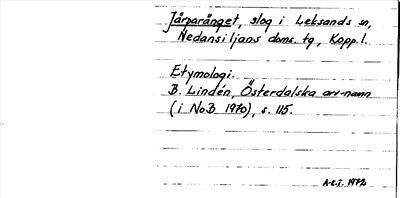 Järparänget, slog i Leksands sn,
Nedansiljans doms. tg, Kopp. l.
Etymologi.
B. Lindén, Österdalska ort-namn
(i NoB 1970), s. 115.
A-C.J. 1972